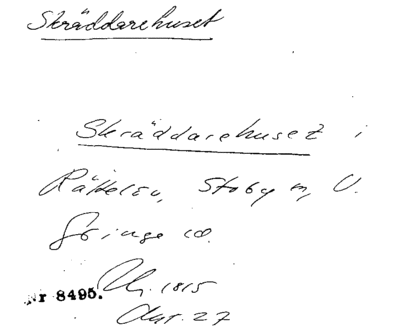 Skräddarehuset
Skräddarehuset i
Rättelöv, Stoby sn, V.
Göinge co.
Nr 8495. Ur. 1815
Avt. 27